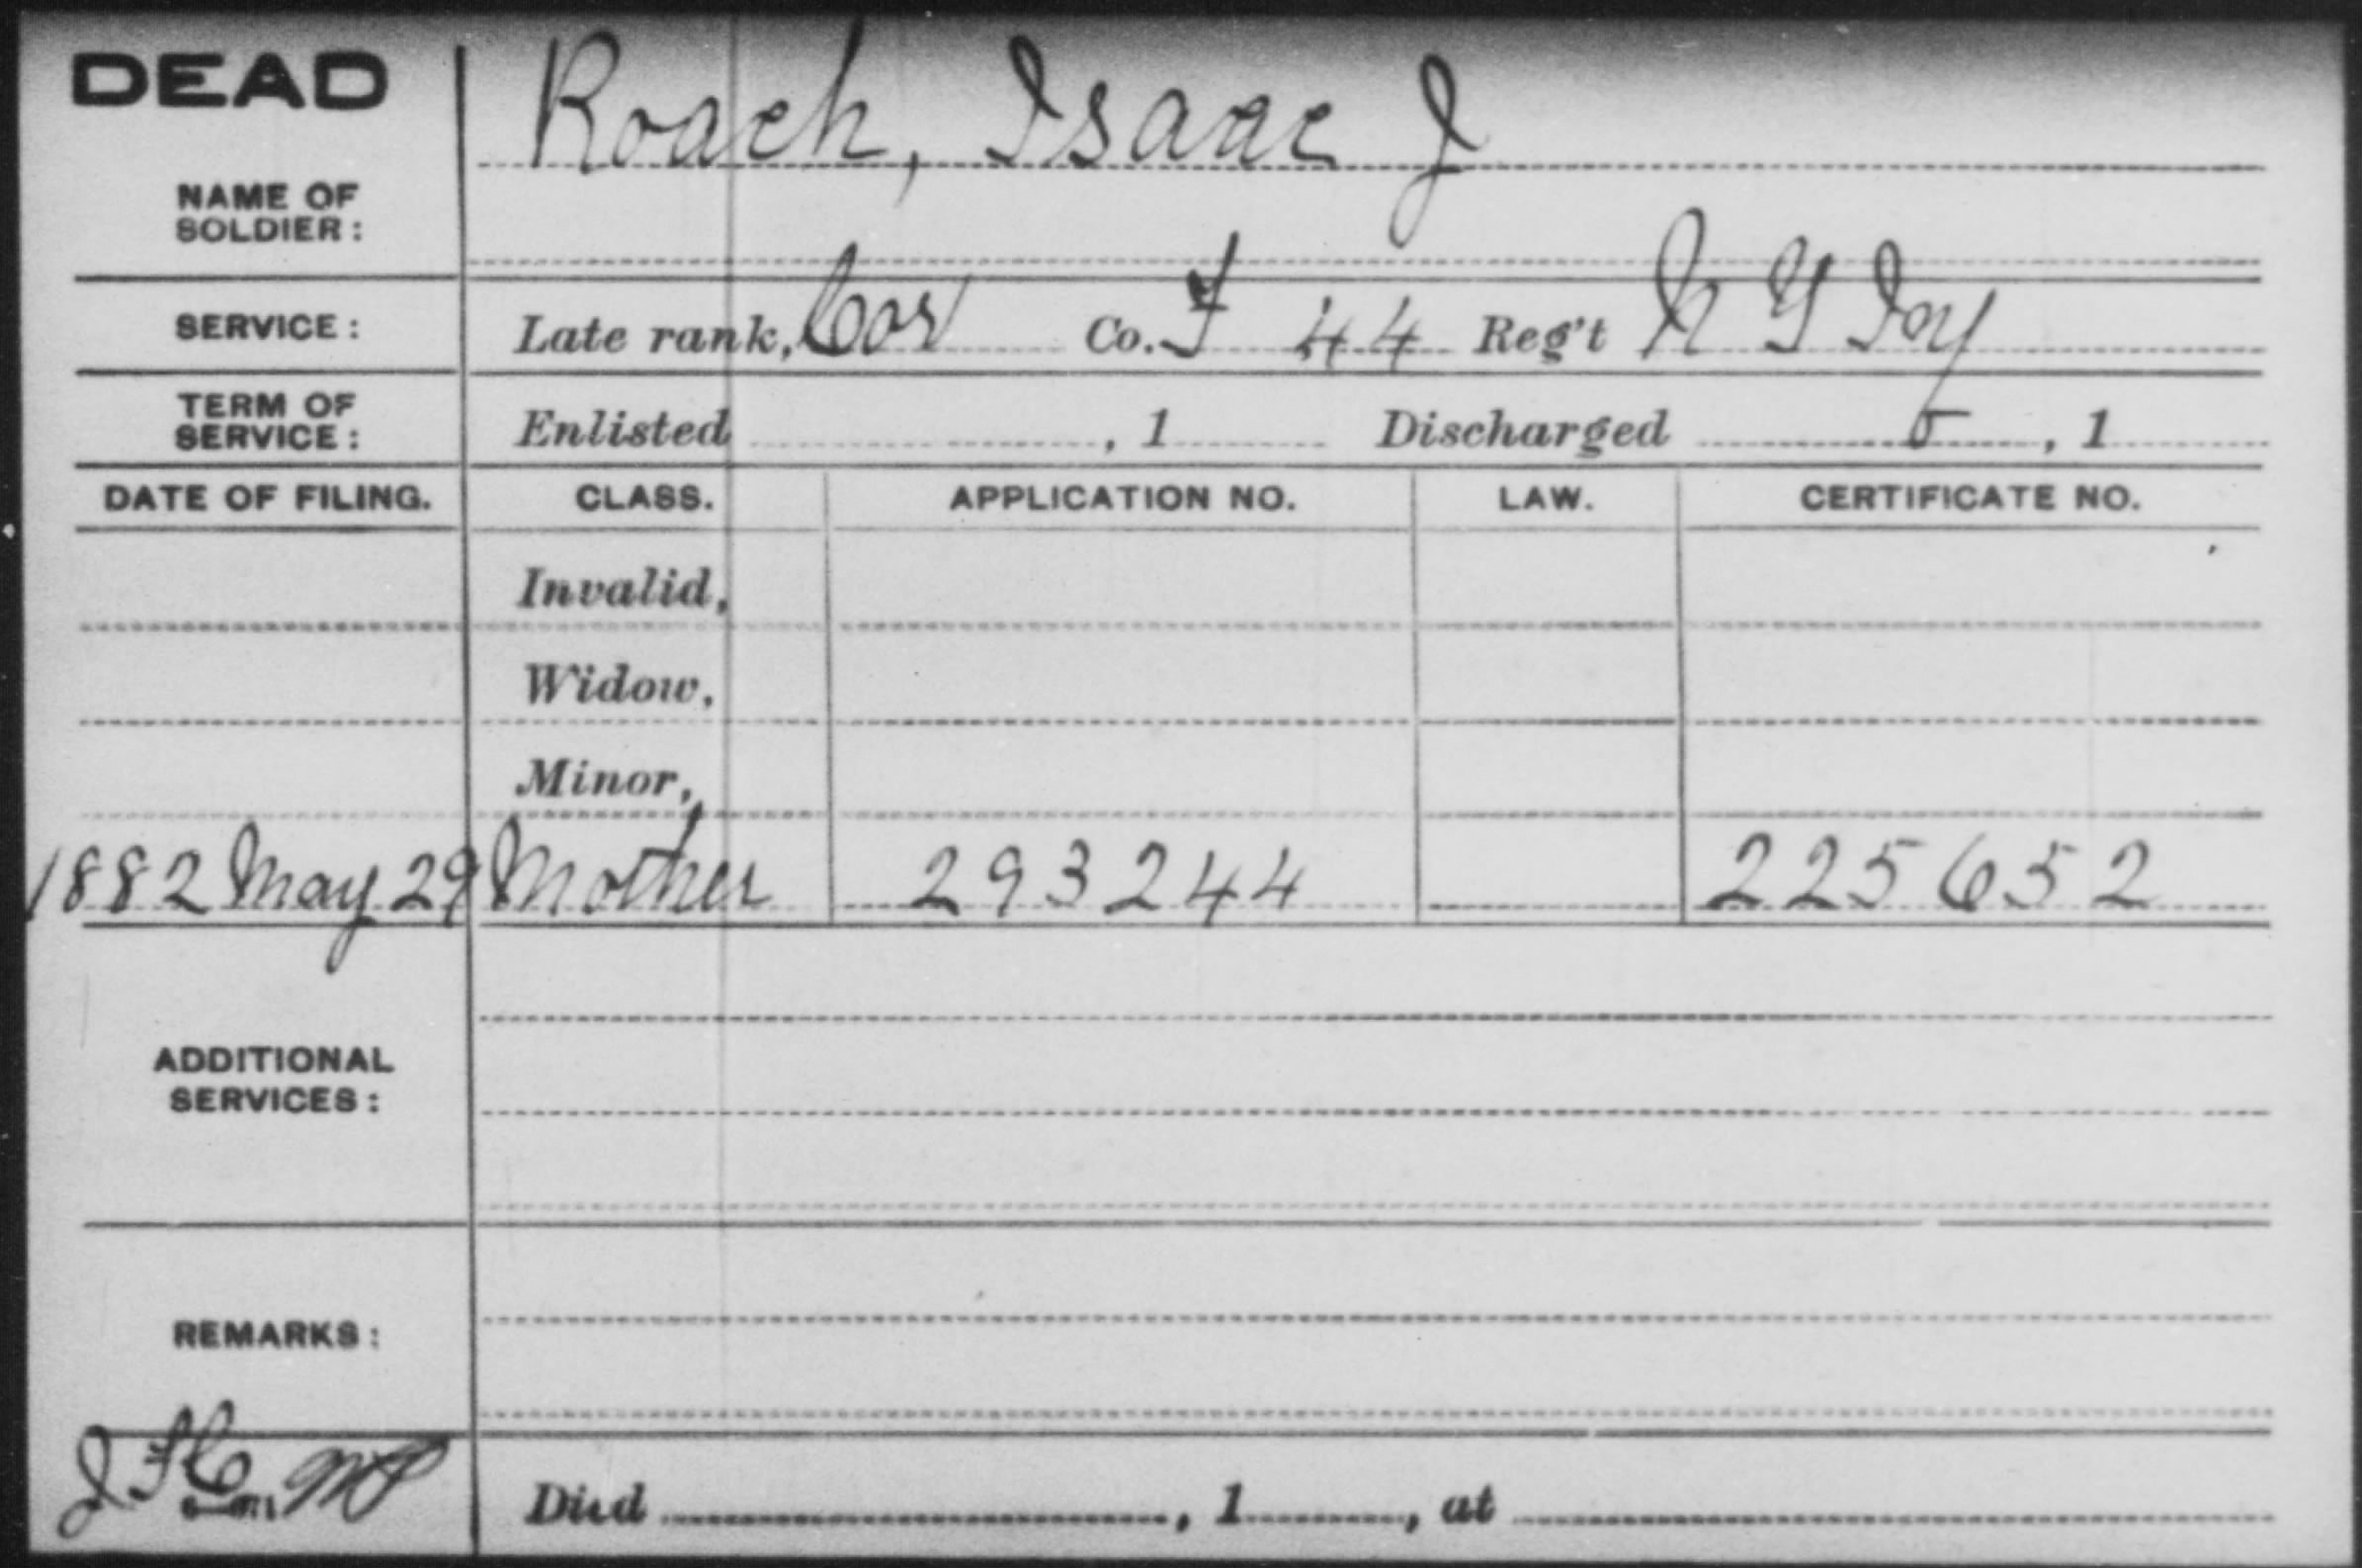 DEAD
Roach, Isaac J
NAME OF
SOLDIER:
SERVICE: Late rank, Cor Co. F 44 Reg't N Y Iny
TERM OF
SERVICE: Enlisted , 1 Discharged , 1
DATE OF FILING. CLASS. APPLICATION NO. LAW. CERTIFICATE NO.
Invalid,
Widow,
Minor,
1882 May 29 Mother 293244 225652
ADDITIONAL
SERVICES:
REMARKS:
Died , 1 , at